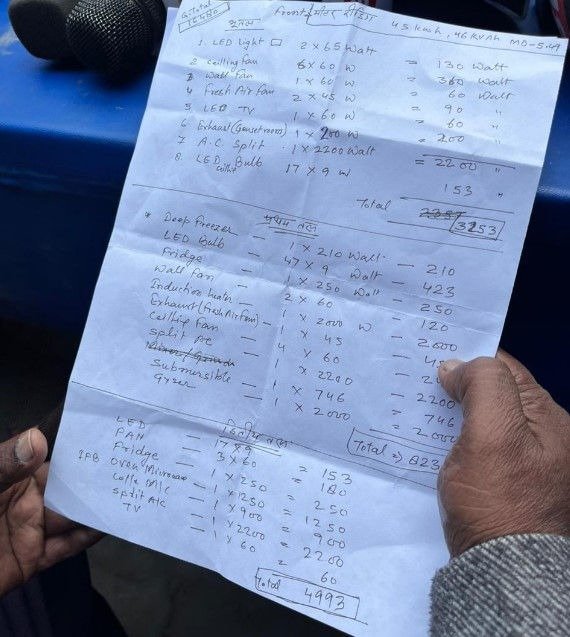 G. Total
16480
Front मीटर रीडिंग 45 kwh, 46 KVAh MD-5.49
भूतल
1. LED light 2 x 65 Watt = 130 Watt
2 Ceiling fan 6 x 60 W = 360 Watt
3 Wall fan 1 x 60 W = 60 Watt
4 Fresh Air Fan 2 x 45 W = 90 "
5 LED TV 1 x 60 W = 60 "
6 Exhaust (Genset room) 1 x 200 W = 200 "
7 A.C. Split 1 x 2200 Watt = 2200 "
8 LED Bulb 17 x 9 W 153 "
Total 3253
* प्रथम तल
Deep Freezer — 1 x 210 Watt — 210
LED Bulb — 47 x 9 Watt — 423
Fridge — 1 x 250 Watt — 250
Wall fan — 2 x 60 — 120
Induction heater — 1 x 2000 W — 2000
Exhaust (Fresh Air Fan) — 1 x 45 — 45
Ceiling Fan — 4 x 60
Split AC — 1 x 2200 — 2200
Submersible — 1 x 746 = 746
Gyser — 1 x 2000 = 2000
Total => 823
द्वितीय तल
LED — 17 x 9 = 153
FAN — 3 x 60 = 180
Fridge — 1 x 250 = 250
IFB Oven Microwave — 1 x 1250 = 1250
Coffe M/c — 1 x 900 = 900
Split A/c — 1 x 2200 = 2200
TV — 1 x 60 = 60
Total 4993